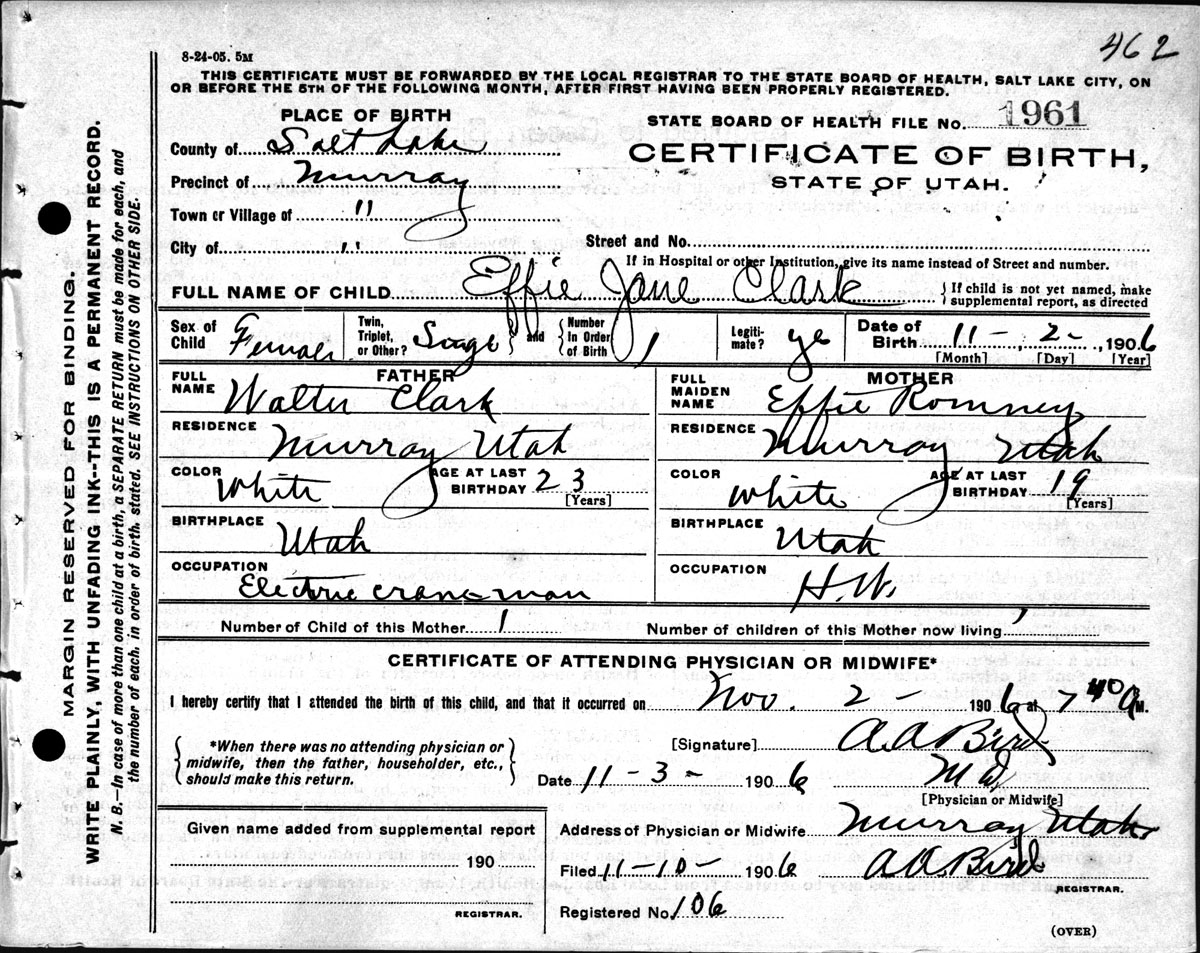 462
8-24-05. 5M
THIS CERTIFICATE MUST BE FORWARDED BY THE LOCAL REGISTRAR TO THE STATE BOARD OF HEALTH, SALT LAKE CITY, ON
OR BEFORE THE 5TH OF THE FOLLOWING MONTH, AFTER FIRST HAVING BEEN PROPERLY REGISTERED.
PLACE OF BIRTH
STATE BOARD OF HEALTH FILE No. 1961
County of Salt Lake
CERTIFICATE OF BIRTH,
Precinct of Murray
STATE OF UTAH.
Town or Village of "
City of "
Street and No.
If in Hospital or other Institution, give its name instead of Street and number.
FULL NAME OF CHILD Effie Jane Clark {If child is not yet named, make
supplemental report, as directed
Sex of Child Female
Twin, Triplet, or Other? and {Number In Order of Birth 1
Legiti- mate? ye
Date of Birth 11 - 2 - 1906
[Month] [Day] [Year]
FATHER
FULL NAME Walter Clark
RESIDENCE Murray Utah
COLOR White AGE AT LAST BIRTHDAY 23
[Years]
BIRTHPLACE Utah
OCCUPATION Electric craneman
MOTHER
FULL MAIDEN NAME Effie Romney
RESIDENCE Murray Utah
COLOR White AGE AT LAST BIRTHDAY 19
[Years]
BIRTHPLACE Utah
OCCUPATION H.W.
Number of Child of this Mother 1 Number of children of this Mother now living 1
CERTIFICATE OF ATTENDING PHYSICIAN OR MIDWIFE*
I hereby certify that I attended the birth of this child, and that it occurred on Nov. 2 - 1906 at 7 40 a M.
{*When there was no attending physician or
midwife, then the father, householder, etc.,
should make this return.}
[Signature] A.A. Bird
Date 11 - 3 - 1906 M D
[Physician or Midwife]
Given name added from supplemental report
190
REGISTRAR.
Address of Physician or Midwife Murray Utah
Filed 11-10- 1906 A.A. Bird
REGISTRAR.
Registered No. 106
(OVER)
MARGIN RESERVED FOR BINDING.
WRITE PLAINLY, WITH UNFADING INK--THIS IS A PERMANENT RECORD.
N. B.—In case of more than one child at a birth, a SEPARATE RETURN must be made for each, and
the number of each, in order of birth, stated. SEE INSTRUCTIONS ON OTHER SIDE.